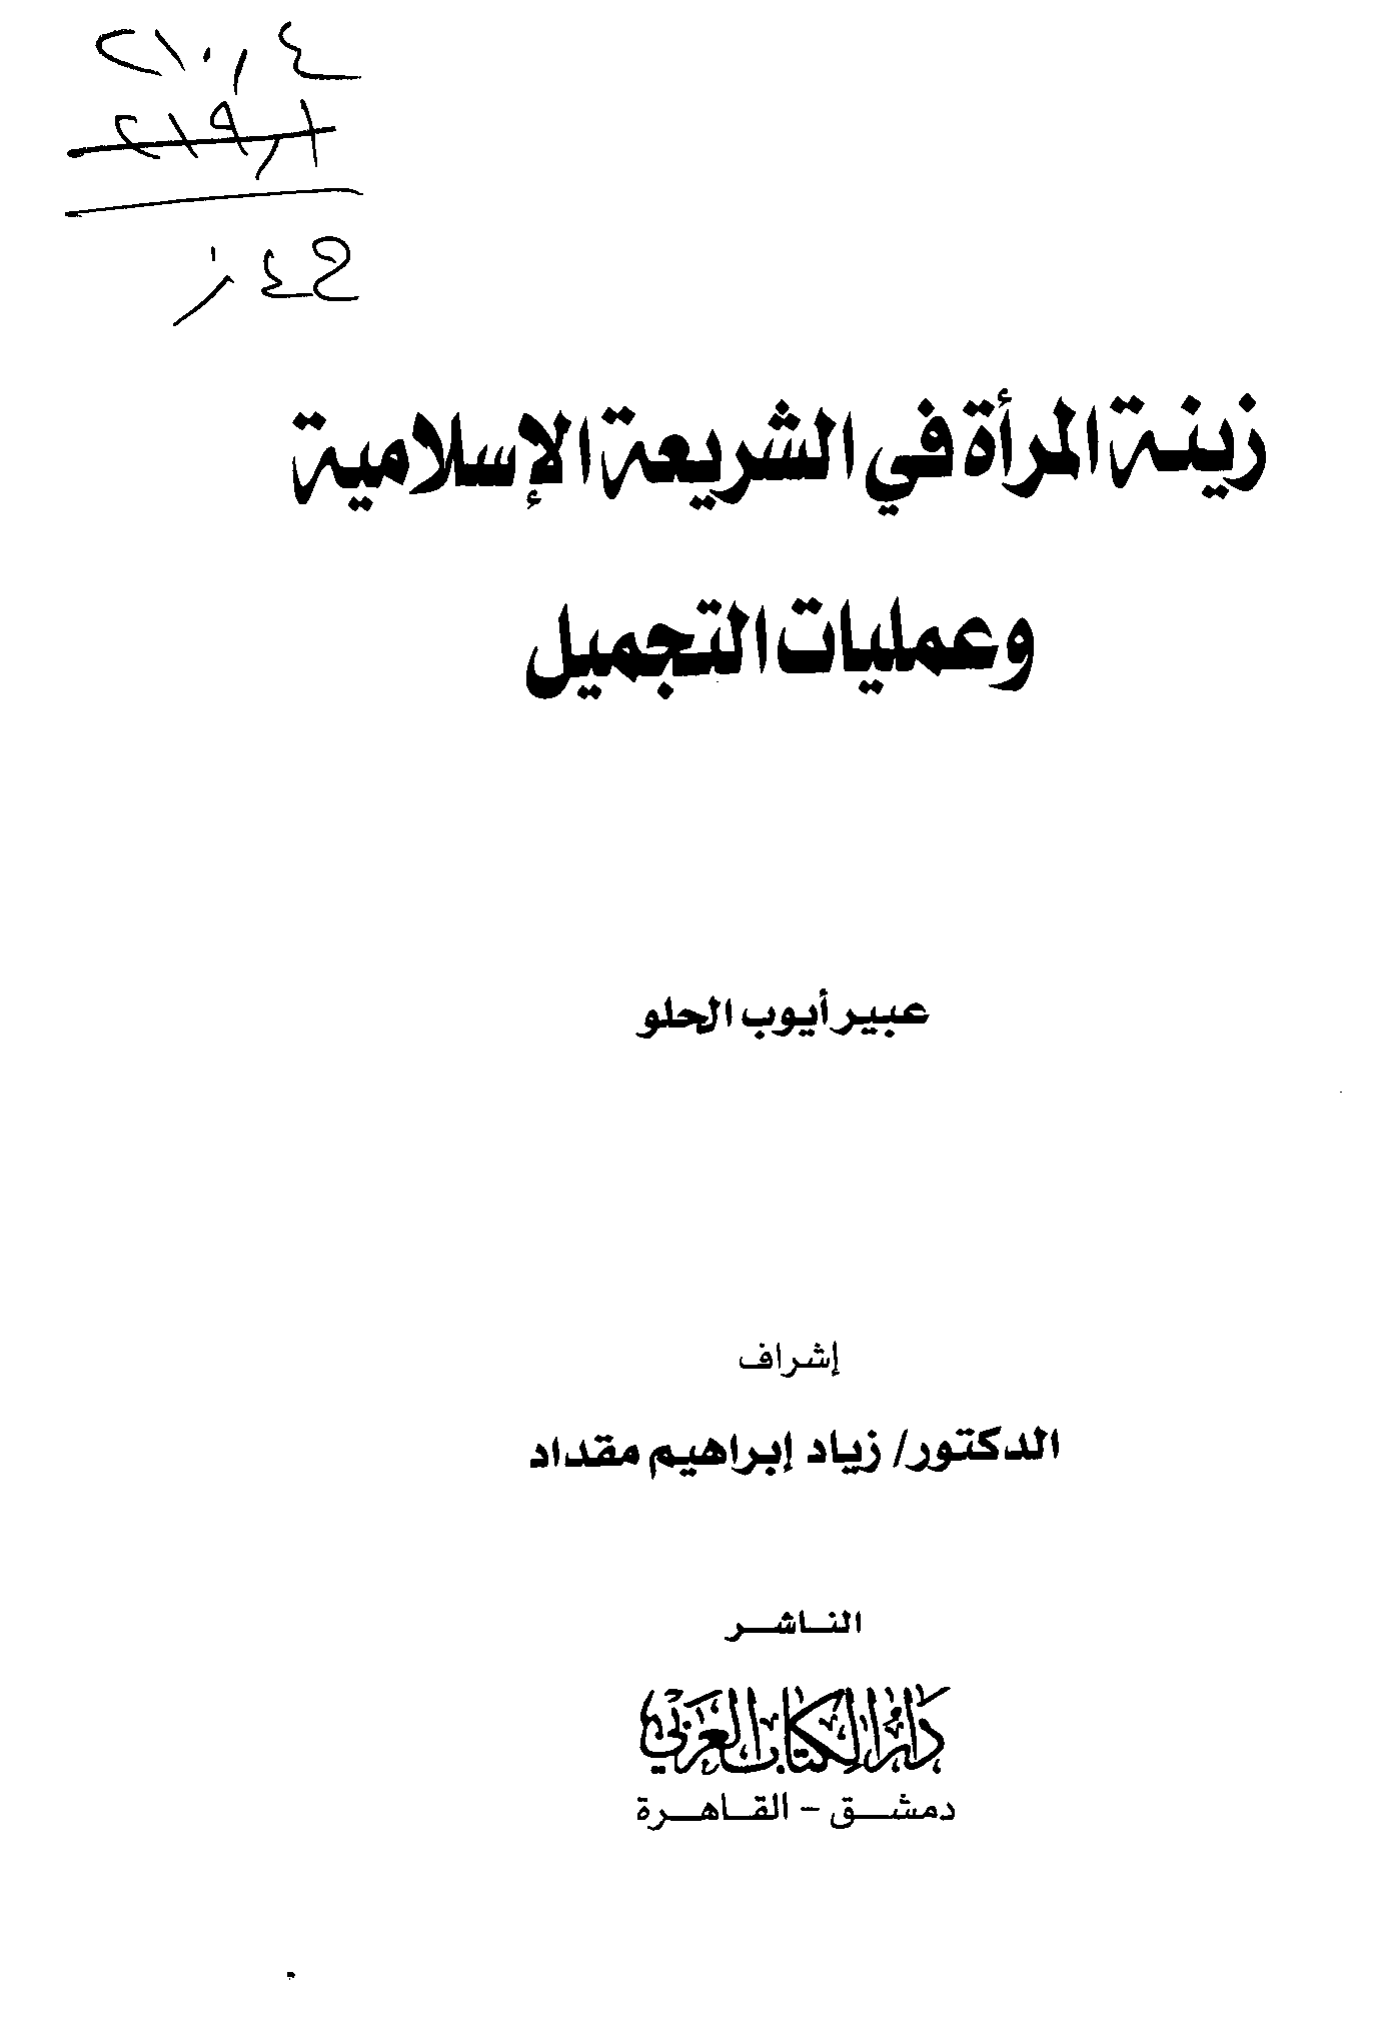 ٢١٠,٤
٢١٩,١
ع ع ز
زينة المرأة في الشريعة الإسلامية
وعمليات التجميل
عبير أيوب الحلو
إشراف
الدكتور/ زياد إبراهيم مقداد
الناشر
دار الكتاب العربي
دمشق - القاهرة